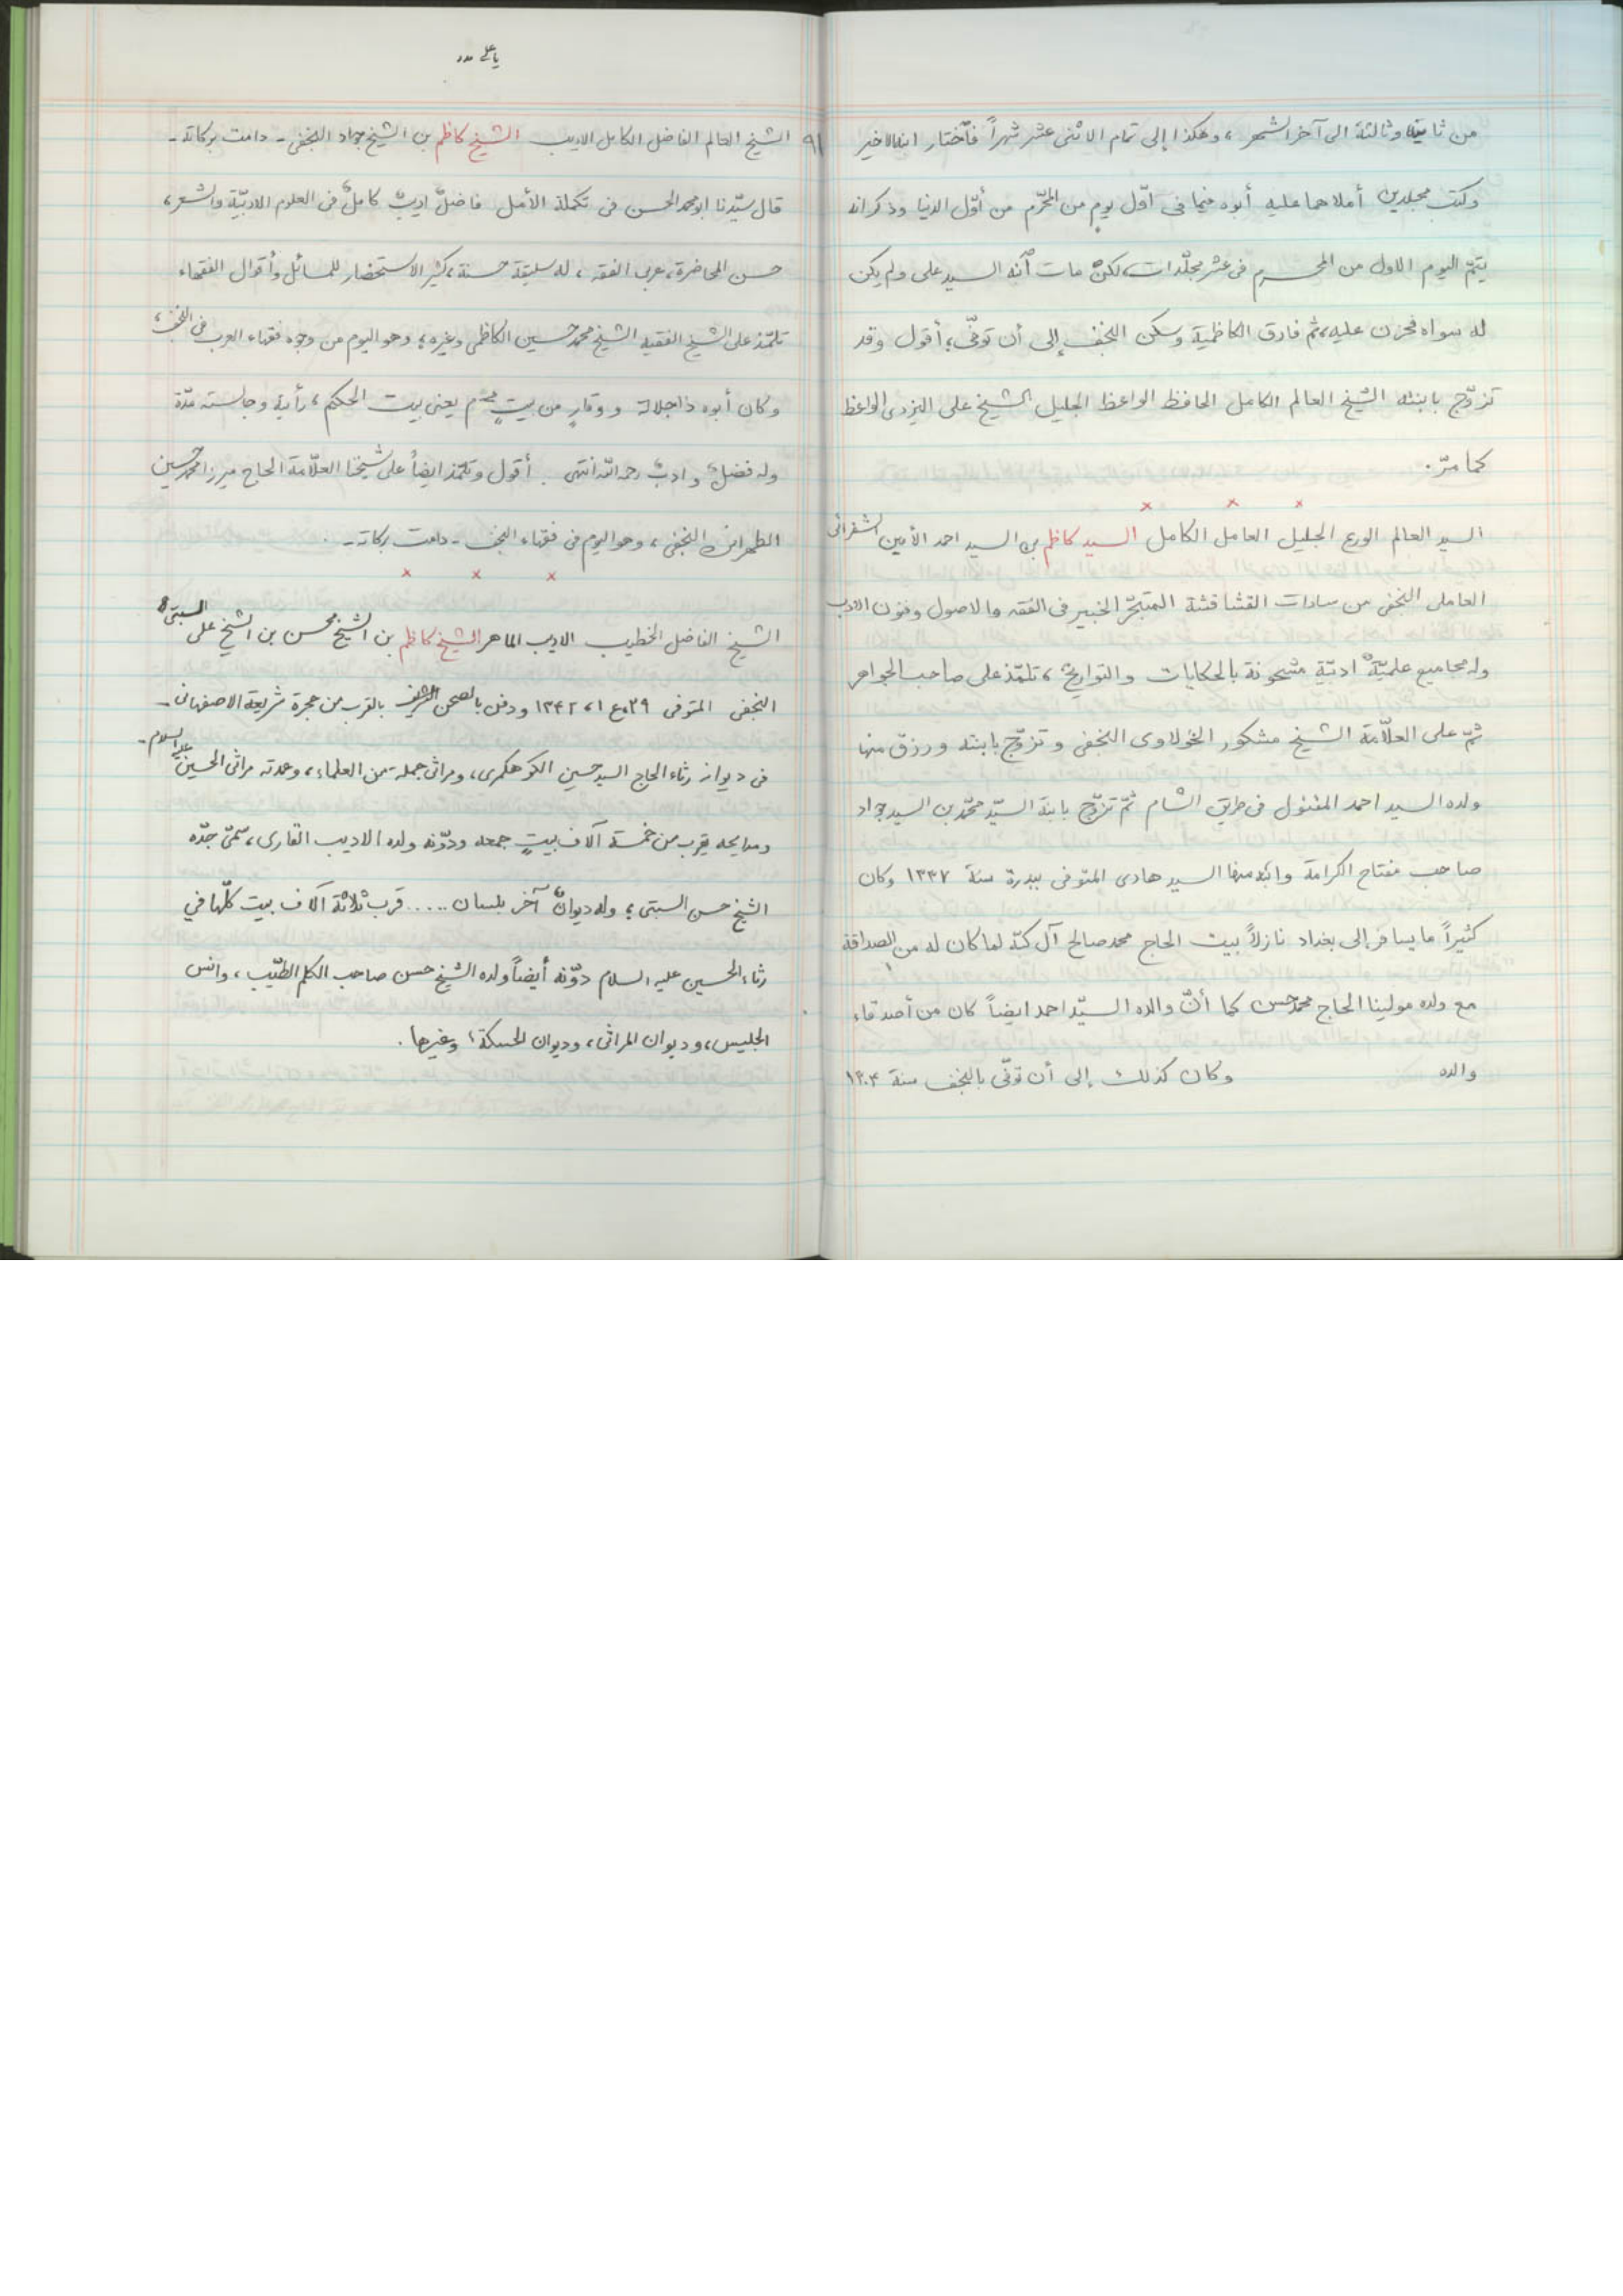 من ثانيها وثالثة الى آخر الشهر، وهكذا إلى تمام الاثنى عشر شهراً فأختار ابنه الاخير
وكتب مجلدين أملاهما عليه أبوه فيما فى اوّل يوم من المحرّم من أوّل الدنيا وذكر انه
يتمّ اليوم الاول من المحرم فى عشر مجلّدات، لكن مات ابنه السيد على ولم يكن
له سواه فحزن عليه، ثم فارق الكاظمية وسكن النجف إلى أن توفّى؛ أقول وقد
تزوّج بابنته الشيخ العالم الكامل الحافظ الواعظ الجليل الشيخ على اليزدى الواعظ
كما مرّ.
× × ×
السيد العالم الورع الجليل العامل الكامل السيد كاظم بن السيد احمد الأمين الشقرائى
العاملى النجفى من سادات القشاقشة المتبحّر الخبير فى الفقه والاصول وفنون الادب
وله مجاميع علميّة ادبيّة مشحونة بالحكايات والتواريخ، تلمّذ على صاحب الجواهر
ثمّ على العلّامة الشيخ مشكور الخولاوى النجفى وتزوّج بابنته ورزق منها
ولده السيد احمد المقتول فى طريق الشام ثمّ تزوّج بابنة السيّد محمّد بن السيد جواد
صاحب مفتاح الكرامة وابنه منها السيد هادى المتوفى ببدرة سنة ١٣٣٧ وكان
كثيراً ما يسافر إلى بغداد نازلاً بيت الحاج محمد صالح آل كبّة لما كان له من الصداقة
مع ولده مولينا الحاج محمد حسن كما أنّ والده السيّد احمد ايضاً كان من أصدقاء
والده وكان كذلك إلى أن توفّى بالنجف سنة ١٣٠٣
يا على مدد
٩١ الشيخ العالم الفاضل الكامل الاديب الشيخ كاظم بن الشيخ جواد النجفى - دامت بركاته -
قال سيّدنا ابو محمد الحسن فى تكملة الأمل فاضل اديب كامل فى العلوم الادبيّة والشعر،
حسن المحاضرة، عربى الفقه، له سليقة حسنة، كثير الاستحضار للمسائل وأقوال الفقهاء
تلمّذ على الشيخ الفقيه الشيخ محمد حسين الكاظمى وغيره؛ وهو اليوم من وجوه فقهاء العرب فى النجف،
وكان أبوه ذا جلالة ووقار من بيت محترم يعنى بيت الحكيم، رأيته وجالسته مدّة
وله فضل وادب رحمه الله انتهى. أقول وتلمّذ ايضاً على شيخنا العلّامة الحاج ميرزا محمد حسين
الطهرانى النجفى، وهو اليوم فى فقهاء النجف - دامت بركاته -.
× × ×
الشيخ الفاضل الخطيب الاديب الماهر الشيخ كاظم بن الشيخ محسن بن الشيخ على السبتى
النجفى المتوفى ٢٩،ع١، ١٣٤٢ ودفن بالصحن الشريف بالقرب من حجرة شريعة الاصفهانى -
فى ديوانه رثاء الحاج السيد حسين الكوهكمرى، ومراثى جملة من العلماء، وعمدته مراثى الحسين عليه السلام -
ومدايحه يقرب من خمسة آلاف بيت جمعه ودوّنه ولده الاديب القارى، سمّى جدّه
الشيخ حسن السبتى؛ وله ديوان آخر بلسان ..... قرب ثلاثة آلاف بيت كلّها في
رثاء الحسين عليه السلام دوّنه أيضاً ولده الشيخ حسن صاحب الكلم الطيّب، وانس
الجليس، وديوان المراثى، وديوان الحسكة؛ وغيرها.